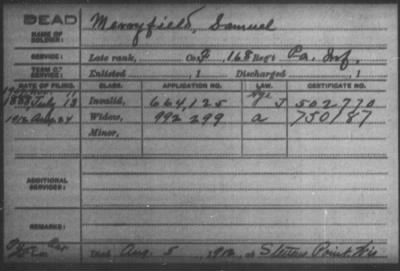 DEAD
NAME OF SOLDIER:
Merryfield, Samuel
SERVICE:
Late rank, Co. 168 Reg't Pa. Inf.
TERM OF SERVICE:
Enlisted , 1 Discharged , 1
DATE OF FILING. CLASS. APPLICATION NO. LAW. CERTIFICATE NO.
1888 July 13 Invalid, 664,125 J 502770
1912 Aug 24 Widow, 992299 a 750187
Minor,
ADDITIONAL SERVICES:
REMARKS:
Died Aug. 5, 1912, at Stevens Point, Wis